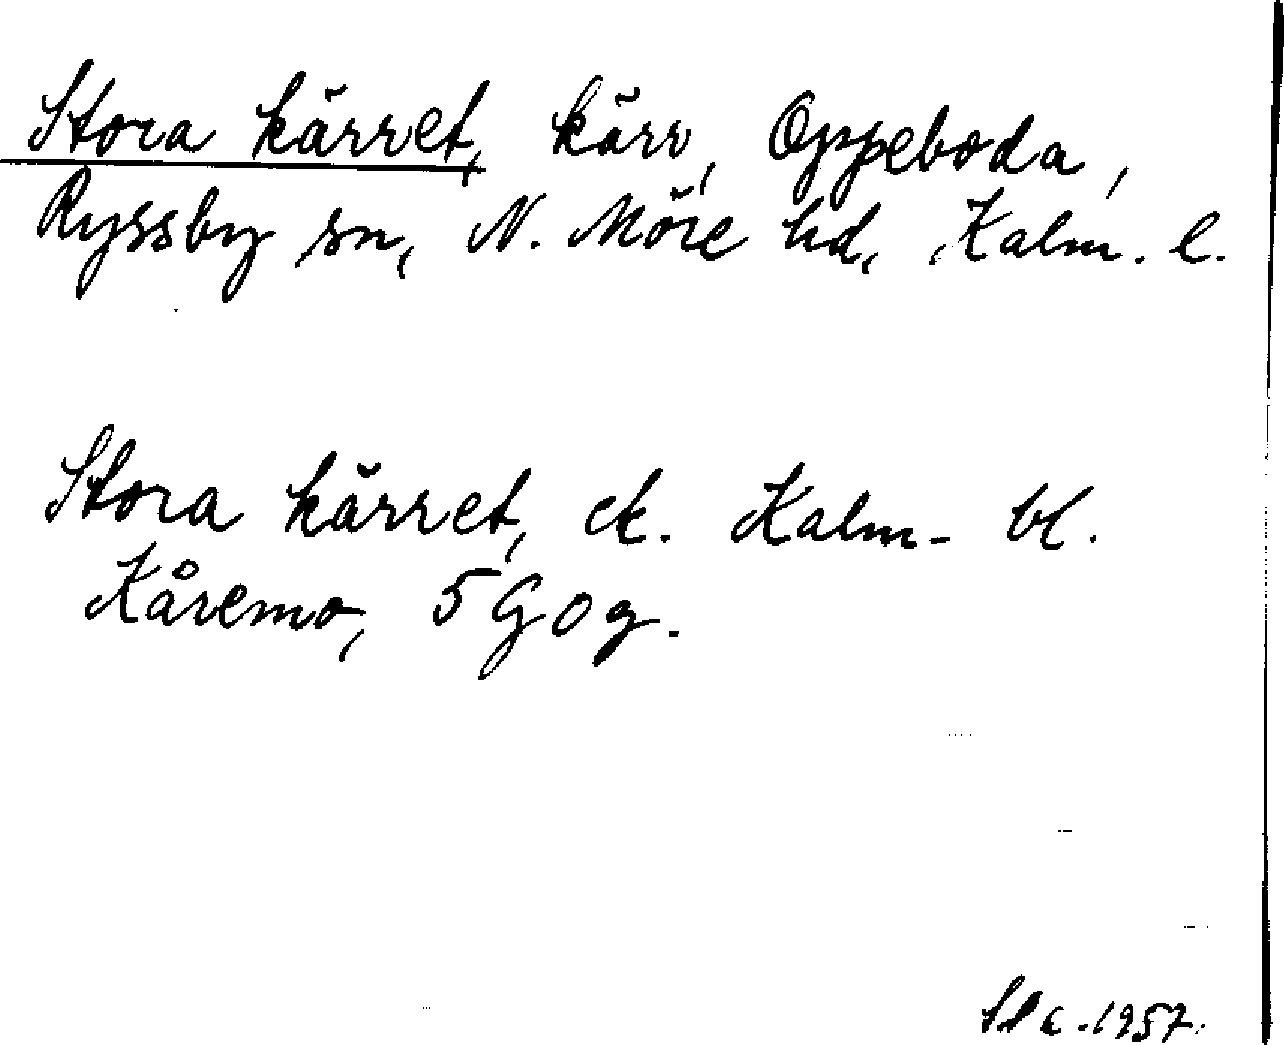 Stora kärret, kärr, Oppeboda,
Ryssby sn, N. Möre hd, Kalm. l.
Stora kärret, ek. Kalm- bl.
Kåremo, 5 G o g.
1957.